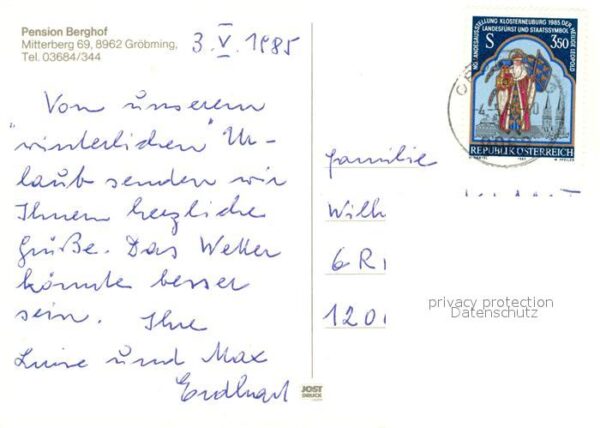 Pension Berghof
Mitterberg 69, 8962 Gröbming,
Tel. 03684/344
3. V. 1985
Von unserem
"winterlichen" Ur-
laub senden wir
Ihnen herzliche
Grüße. Das Wetter
könnte besser
sein. Ihre
Luise und Max
NÖ. LANDESAUSSTELLUNG KLOSTERNEUBURG 1985 DER HEILIGE LEOPOLD
LANDESFÜRST UND STAATSSYMBOL
S 3,50
REPUBLIK ÖSTERREICH
Familie
Wilh
6 R
120
privacy protection
Datenschutz
JOST
DRUCK